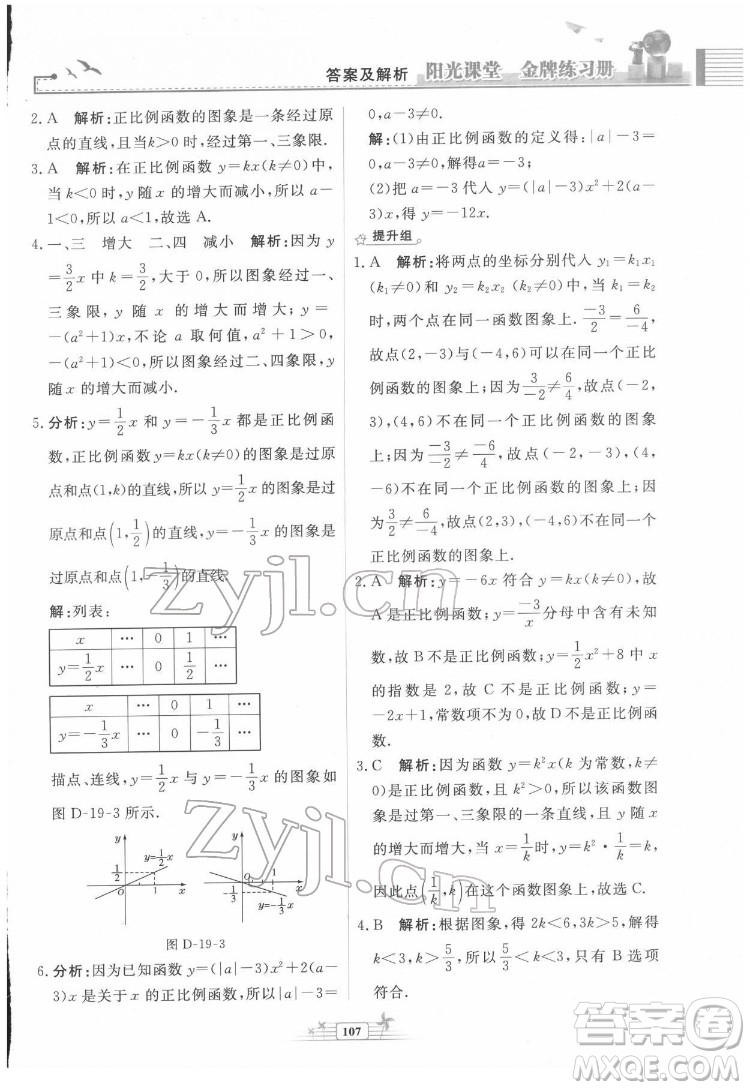 答案及解析 阳光课堂 金牌练习册
2. A 解析:正比例函数的图象是一条经过原
点的直线,且当k>0时,经过第一、三象限.
3. A 解析:在正比例函数 y=kx(k≠0)中,
当 k<0时,y 随 x 的增大而减小,所以 a-
1<0,所以 a<1,故选 A.
4. 一、三 增大 二、四 减小 解析:因为 y
=3/2x 中 k=3/2,大于 0,所以图象经过一、
三象限,y 随 x 的增大而增大,y=
-(a²+1)x,不论 a 取何值,a²+1>0,
-(a²+1)<0,所以图象经过二、四象限,y
随x的增大而减小.
5. 分析:y=1/2x 和 y=-1/3x 都是正比例函
数,正比例函数 y=kx(k≠0)的图象是过原
点和点(1,k)的直线,所以 y=1/2x 的图象是过
原点和点(1,1/2)的直线,y=-1/3x 的图象是
过原点和点(1,-1/3)的直线.
解:列表:
x … 0 1 …
y=1/2x … 0 1/2 …
x … 0 1 …
y=-1/3x … 0 -1/3 …
描点、连线,y=1/2x 与 y=-1/3x 的图象如
图 D-19-3 所示.
y y=1/2x 1/2 O 1 x
y y=-1/3x O 1 x -1/3
图 D-19-3
6. 分析:因为已知函数 y=(|a|-3)x²+2(a-
3)x是关于 x 的正比例函数,所以|a|-3=
0,a-3≠0.
解:(1)由正比例函数的定义得:|a|-3=
0,a-3≠0,解得a=-3.
(2)把 a=-3 代入 y=(|a|-3)x²+2(a-
3)x,得 y=-12x.
提升组
1. A 解析:将两点的坐标分别代入 y₁=k₁x₁
(k₁≠0)和 y₂=k₂x₂(k₂≠0)中,当 k₁=k₂
时,两个点在同一函数图象上. -3/2=6/-4,
故点(2,-3),(-4,6)在同一个正比
例函数的图象上;因为3/-2≠6/4,故点(-2,
3),(4,6)不在同一个正比例函数的图象
上;因为-3/-2≠-6/4,故点(-2,-3),(4,
-6)不在同一个正比例函数的图象上;
因为3/2≠6/-4,故点(2,3),(-4,6)不在同一个
正比例函数的图象上.
2. A 解析:y=-6x 符合 y=kx(k≠0),故
A是正比例函数;y=-3/x分母中含有未知
数,故 B 不是正比例函数;y=1/2x²+8 中 x
的指数是 2,故 C 不是正比例函数;y=
-2x+1,常数项不为 0,故 D 不是正比例函
数.
3. C 解析:因为函数 y=k²x(k 为常数,k≠
0)是正比例函数,k²>0,所以该函数图
象是过第一、三象限的一条直线,y 随 x
的增大而增大,当 x=1/k时,y=k²·1/k=k,
因此点(1/k,k)在这个函数图象上,故选 C.
4. B 解析:根据图象,得 2k<6,3k>5,解得
k<3,k>5/3,所以5/3<k<3.只有 B 选项
符合.
107
Zyjl.cn
Zyjl.cn
答案卷
MXQE.COM